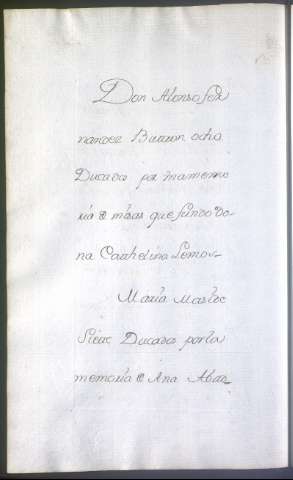 Don Alonso fer
nandez Barron ocho
Ducados por la memo
ria de misas que fundo Do
na Catthelina Lemos
Maria
siete Ducados por la
memoria de Ana